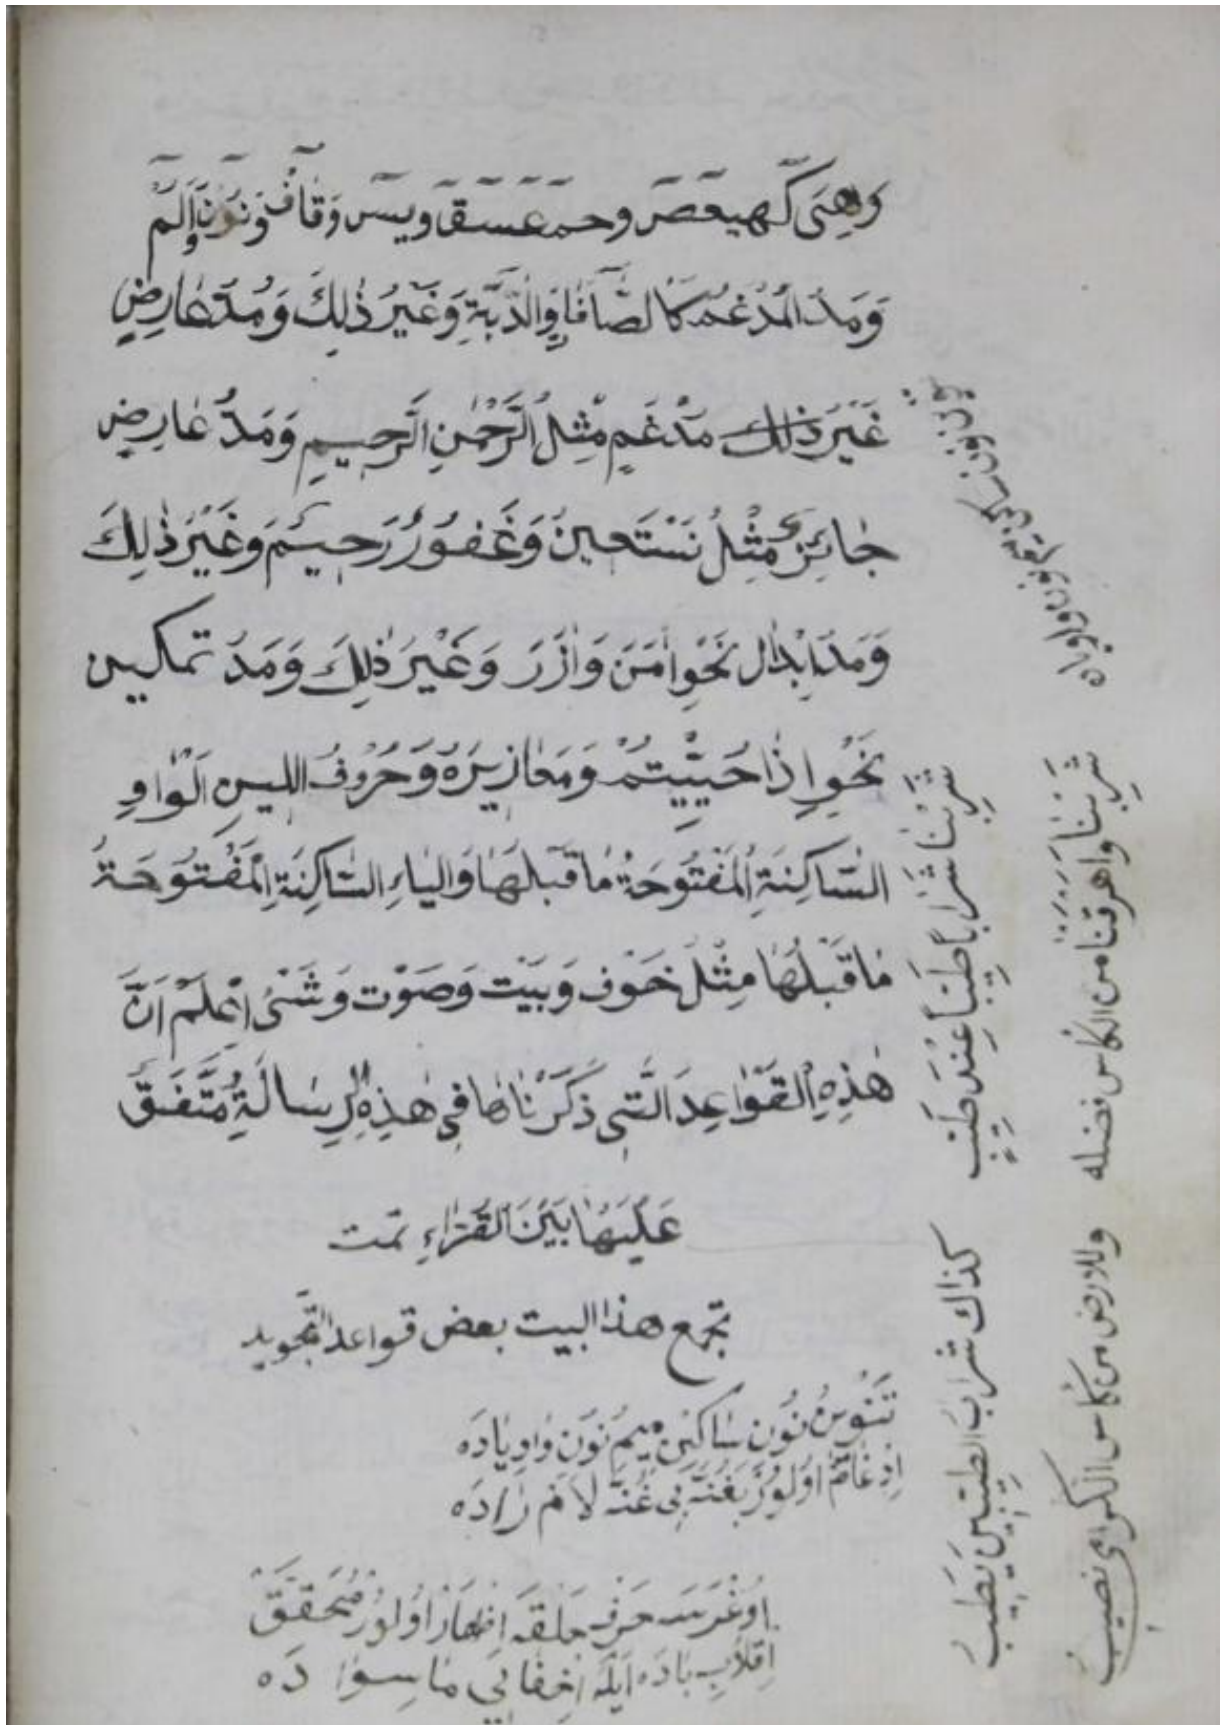 وَهِيَ كٓهيعٓصٓ وحمٓ عٓسٓقٓ ويسٓ وَقٰافْ وَنوٓنْ وَالٓمٓ
وَمَدّ المُدْغَمْ كَالصَّآفّٰاتِ وَالدّٰٓبَّةِ وَغَيْرُ ذٰلِكَ وَمُدّ عٰارِضٍ
غَيْرَ ذٰلك مُدْغَمٍ مِثْلُ الرَّحْمٰنِ الرَّحِيمِ وَمَدّ عٰارِضٍ
جٰائِزٌ مِثْلُ نَسْتَعينُ وَغَفُورٌ رَحيمٌ وَغَيْرَ ذٰلِكَ
وَمَدّ اِبْدٰال نَحْوِ اٰمَنَ وَاٰزَرَ وَغَيْرَ ذٰلِكَ وَمَدّ تمكين
نَحْوِ اِذٰا حُيّيتُمْ وَمَعٰاذِيرَهُ وَحُرُوفُ اللينِ الْوٰاوِ
السّٰاكِنَةِ الْمَفْتُوحَةُ مٰا قَبْلَهٰا وَاليٰاءِ السّٰاكِنَةِ الْمَفْتُوحَةُ
مٰا قَبْلَهٰا مِثْلُ خَوْف وَبَيْت وَصَوْت وَشَىْءُ اِعْلَمْ اَنَّ
هٰذِهِ القَوٰاعِدَ الَّتى ذَكَرْنٰاهٰا فى هٰذِهِ الرِّسٰالَةِ مُتَّفَقٌ
عَلَيْهٰا بَيْنَ القُرّٰاءِ تمّت
تجمع هذا البيت بعض قواعد التجويد
تَنْوينُ نُونِ سٰاكِنْ ميمْ نُون وٰاوِ يٰادَه
اِدْغٰامْ اُولُورْ بَغُنَّه بى غُنَّه لاٰمْ رٰادَه
اُوغْرَسَه حَرْفِ حَلْقَه اِظْهٰارْ اُولُورْ مُحَقَّقْ
اِقْلاٰبِ بٰادَه اَيْلَه اِخْفٰايى مٰاسِوٰا دَه
شَرِبْنَا شَرَاباً طَيِّباً عِنْدَ طَيِّبٍ
كذاك شراب الطيّبين يَطِيبُ
شَرِبْنَا واهرقنا من الكاس فضله
وللارض من كاس الكرام نصيب